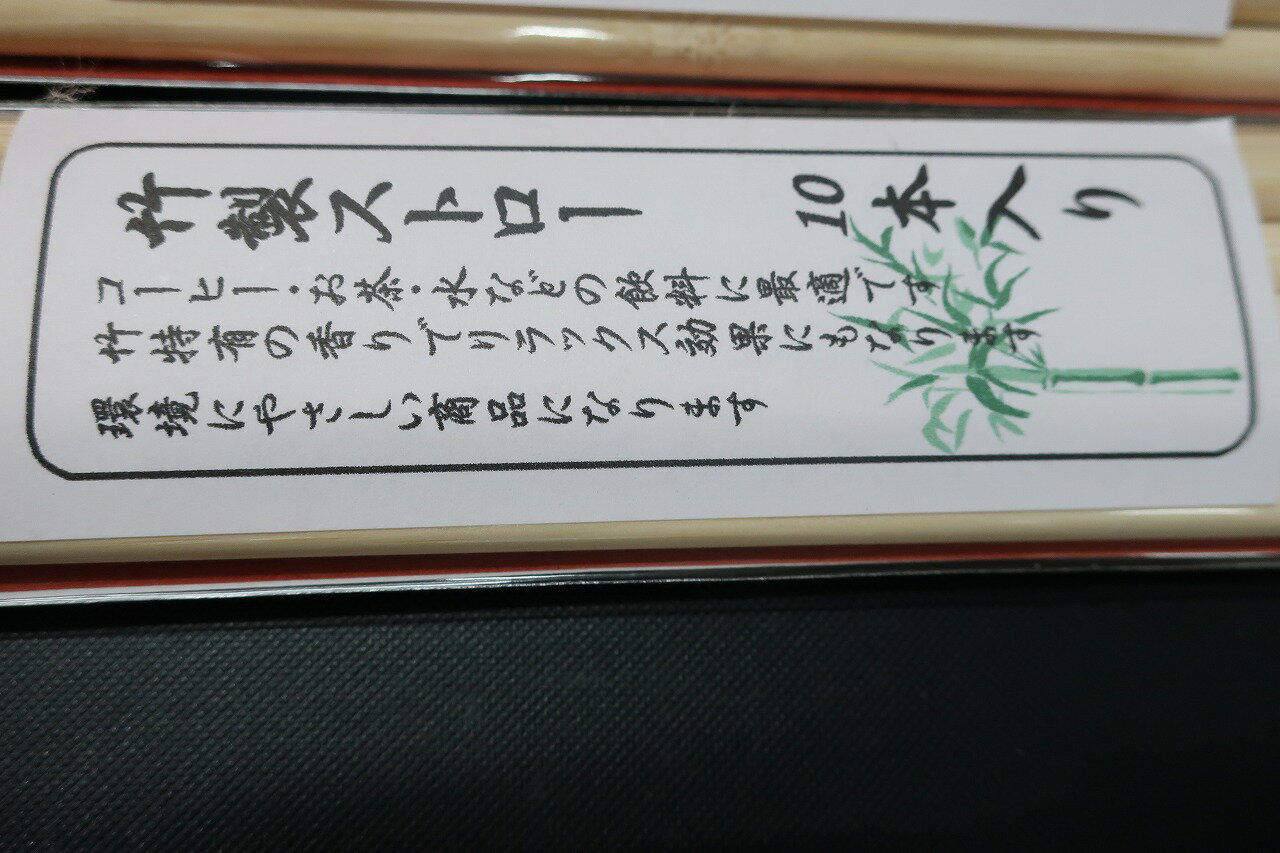 竹製ストロー 10本入り
コーヒー・お茶・水などの飲料に最適です
竹特有の香りでリラックス効果にもなります
環境にやさしい商品になります